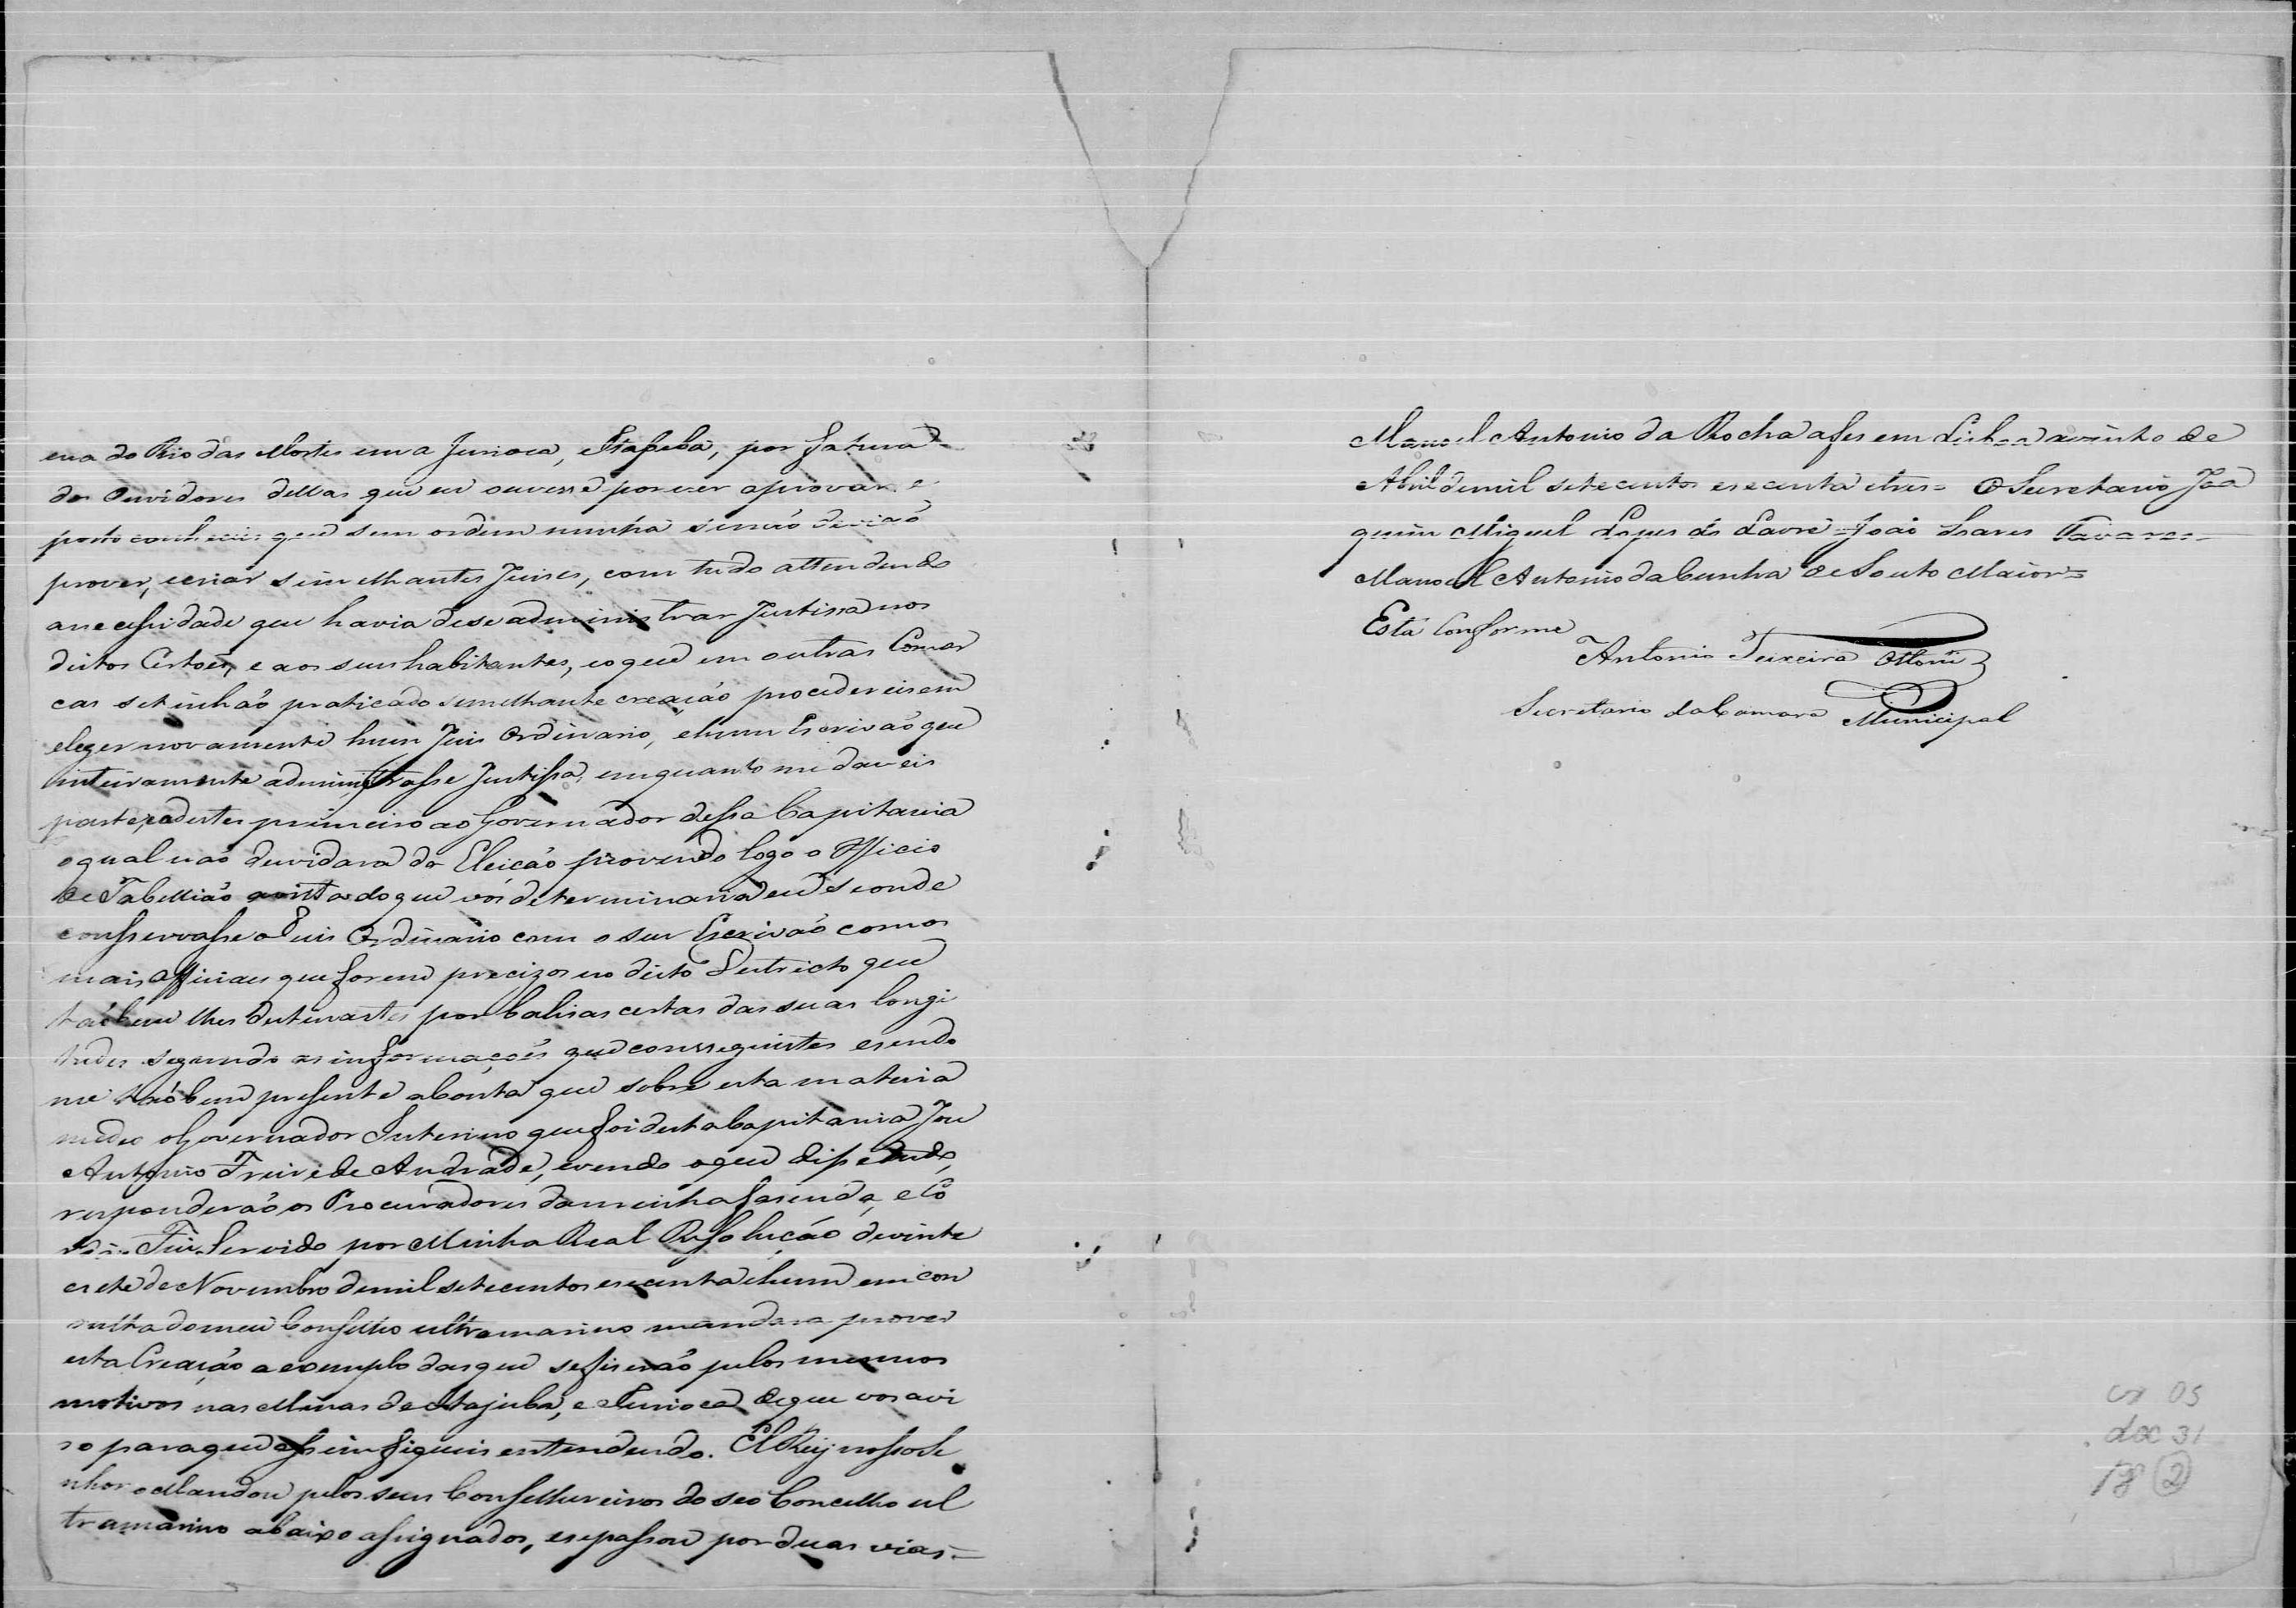 do Rio das Mortes em a Juruoca, e Itapeba, por
dos Ouvidores dellas que eu ouvesse por ver aprovar e
posto conheceis que sem ordem minha se não devião
prover, e criar similhantes Juises, com tudo attendendo
a necessidade que havia de se administrar Justissa nos
dictos Certoes, e aos seus habitantes, e o que em outras Comar
cas se tinhão praticado semelhante creação procedereis em
eleger novamente hum Juis Ordinario, e hum Escrivão que
inteiramente administrasse Justissa, em quanto me daveis
parte, e a destes primeiro ao Governador dessa Capitania
o qual não duvidara da Eleição provendo logo o Officio
de Tabellião a vista do que vós determinaria eu se onde
conservasse o Juis Ordinario com o seu Escrivão com os
mais Officiaes que forem precizos no dicto Destricto que
tãobem lhes por balisas certas das suas longi
tudes segundo as informações que conseguistes e sendo
me tãobem presente a Conta que sobre esta materia
me deo o Governador Interino que foi desta Capitania Jose
Antonio Freire de Andrade, e vendo o que
responderão os Procuradores da minha fasenda, e Co
rôa. Fui Servido por Minha Real Resolução de vinte
e sete de Novembro de mil setecentos e secenta e hum em con
sulta do meu Conselho ultramarino mandara prover
esta Creação a exemplo das que se fiserão pelos mesmos
motivos nas Minas de Itajuba, e Juruoca de que vos avi
so para que assim fiqueis entendendo. El Rey nosso Se
nhor o Mandou pelos seus Conselheiros do seo Concelho ul
tramarino abaixo assignados, e se passou por duas vias. =
Manoel Antonio da Rocha a fes em Lisboa a vinte de
Abril de mil setecentos e secenta e tres = O Secretario Joa
quim Miguel Lopes de Lavre = João Soares Tavares =
Manoel Antonio da Cunha de Souto Maior =
Está Conforme
Antonio Teixeira Ottoni
Secretario da Camara Municipal
cx 05
doc 31
18 2